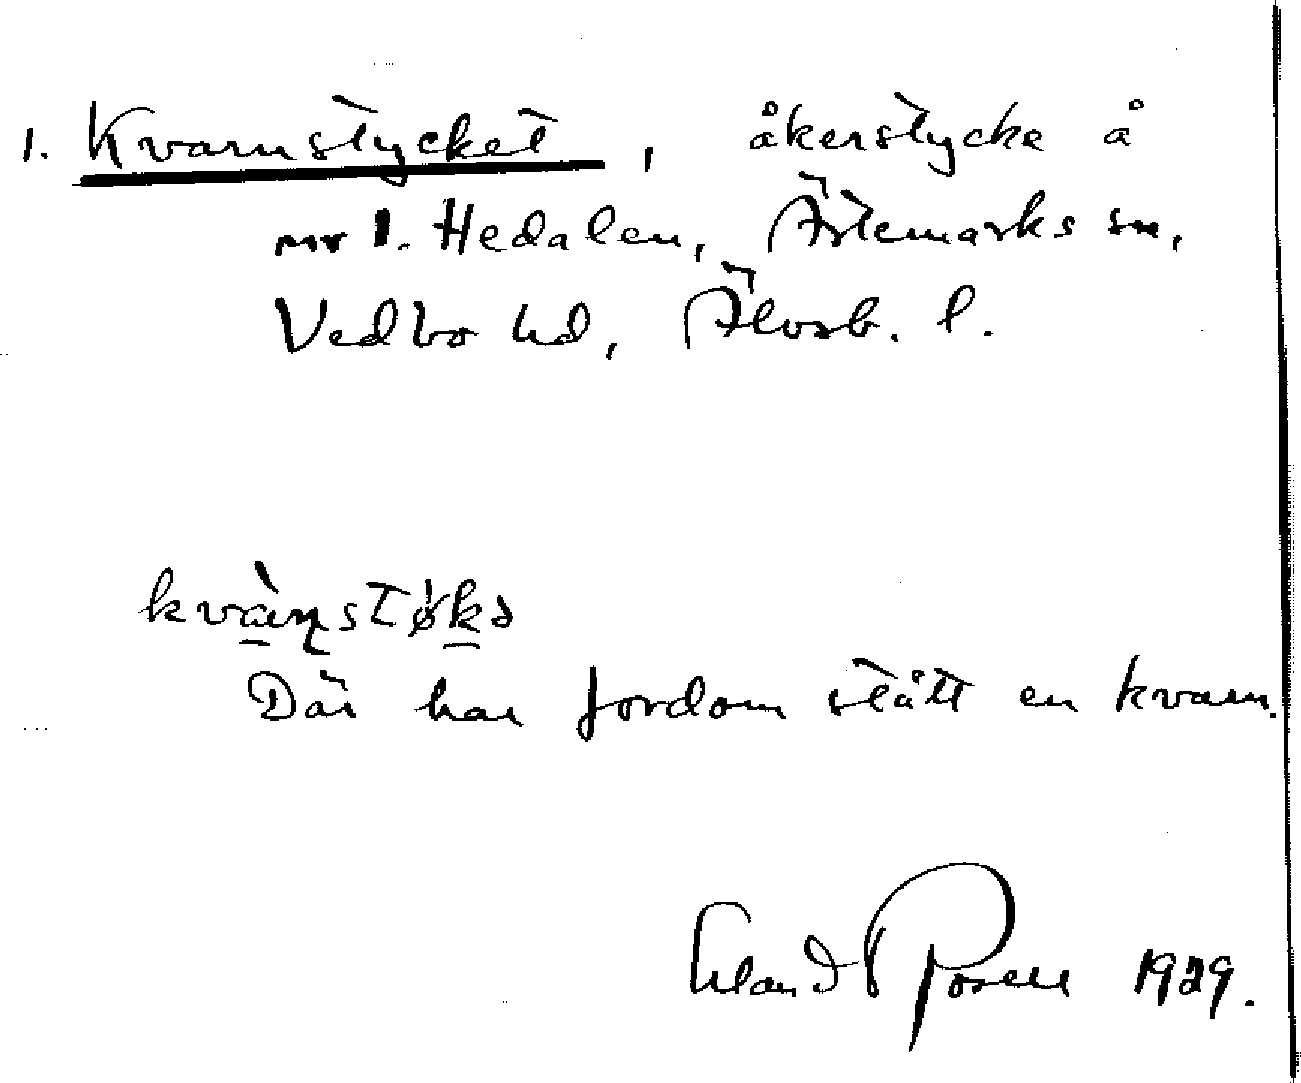 1. Kvarnstycket, åkerstycke å
nr 1. Hedalen, Ärtemarks sn,
Vedbo hd, Älvsb. l.
kvànstøkə
Där har fordom stått en kvarn.
Erland Rosell 1929.